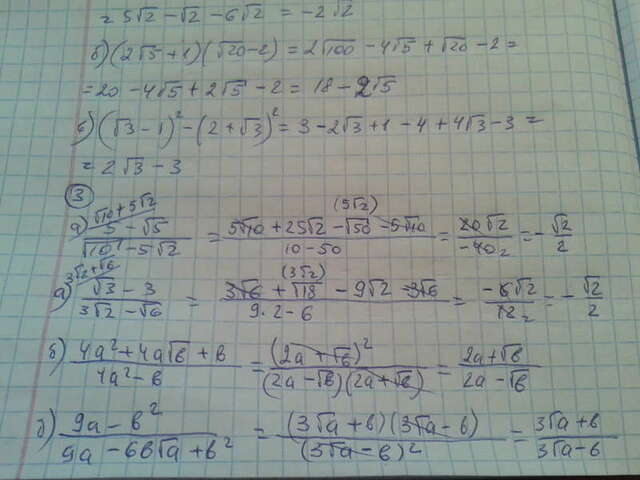 = 5√2 - √2 - 6√2 = -2√2
б) (2√5 + 1)(√20 - 2) = 2√100 - 4√5 + √20 - 2 =
= 20 - 4√5 + 2√5 - 2 = 18 - 2√5
в) (√3 - 1)² - (2 + √3)² = 3 - 2√3 + 1 - 4 + 4√3 - 3 =
= 2√3 - 3
③
√10 + 5√2 (5√2)
а) (5 - √5)/(√10 - 5√2) = (5√10 + 25√2 - √50 - 5√10)/(10 - 50) = 20√2/(-40 2) = -√2/2
3√2 + √6 (3√2)
а) (√3 - 3)/(3√2 - √6) = (3√6 + √18 - 9√2 - 3√6)/(9·2 - 6) = -6√2/(12 2) = -√2/2
б) (4a² + 4a√в + в)/(4a² - в) = (2a + √в)²/((2a - √в)(2a + √в)) = (2a + √в)/(2a - √в)
б) (9a - в²)/(9a - 6в√a + в²) = (3√a + в)(3√a - в)/(3√a - в)² = (3√a + в)/(3√a - в)